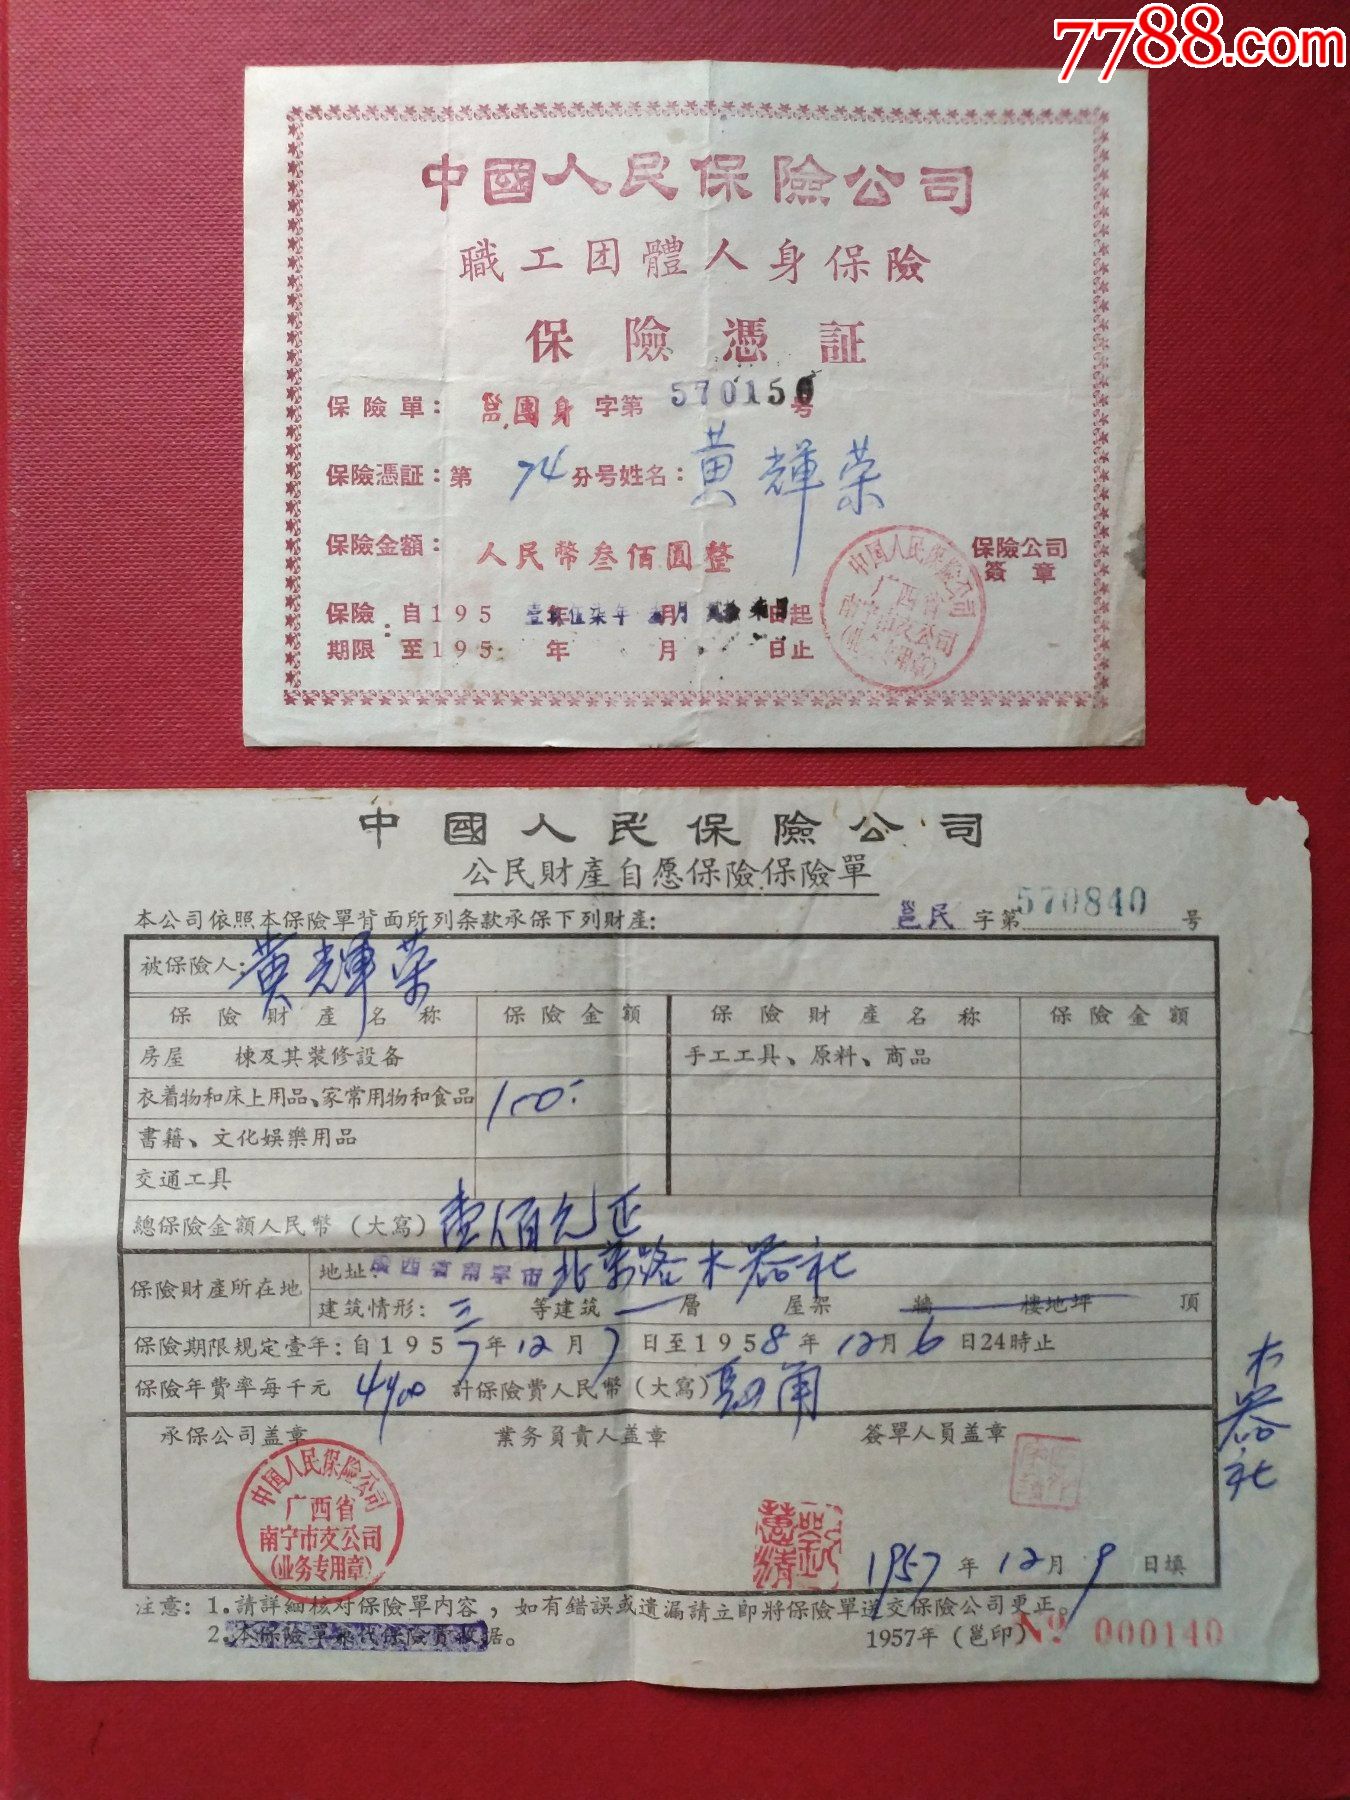 7788.com
中國人民保險公司
職工团體人身保險
保險憑証
保險單：邕團身 字第 570150 号
保險憑証：第 74 分号姓名：黄輝荣
保險金額：人民幣叁佰圓整
保險公司
簽章
保險 自195 年 月 日起
期限：至195 年 月 日止
中国人民保險公司
广西省
南宁市支公司
(业务专用章)
中國人民保險公司
公民財產自愿保險保險單
本公司依照本保險單背面所列条款承保下列財產：
邕民 字第 570840 号
被保險人：黄輝荣
保險財產名称 保險金額 保險財產名称 保險金額
房屋 棟及其裝修設备 手工工具、原料、商品
衣着物和床上用品、家常用物和食品 100.
書籍、文化娱樂用品
交通工具
總保險金額人民幣（大寫）壹佰元正
保險財產所在地 地址：廣西省南宁市 北 路木器社
建筑情形：三 等建筑 一 層 屋架 牆 樓地坪 頂
保險期限規定壹年：自1957年12月7日至1958年12月6日24時止
保險年费率每千元 4.00 計保險費人民幣（大寫） 角
木器社
承保公司盖章 業务負責人盖章 簽單人員盖章
中国人民保險公司
广西省
南宁市支公司
(业务专用章)
1957年12月9日填
注意：1.請詳細核对保險單内容，如有錯誤或遺漏請立即將保險單送交保險公司更正。
2.本保險單兼代保險費收据。
1957年（邕印）
№ 000140